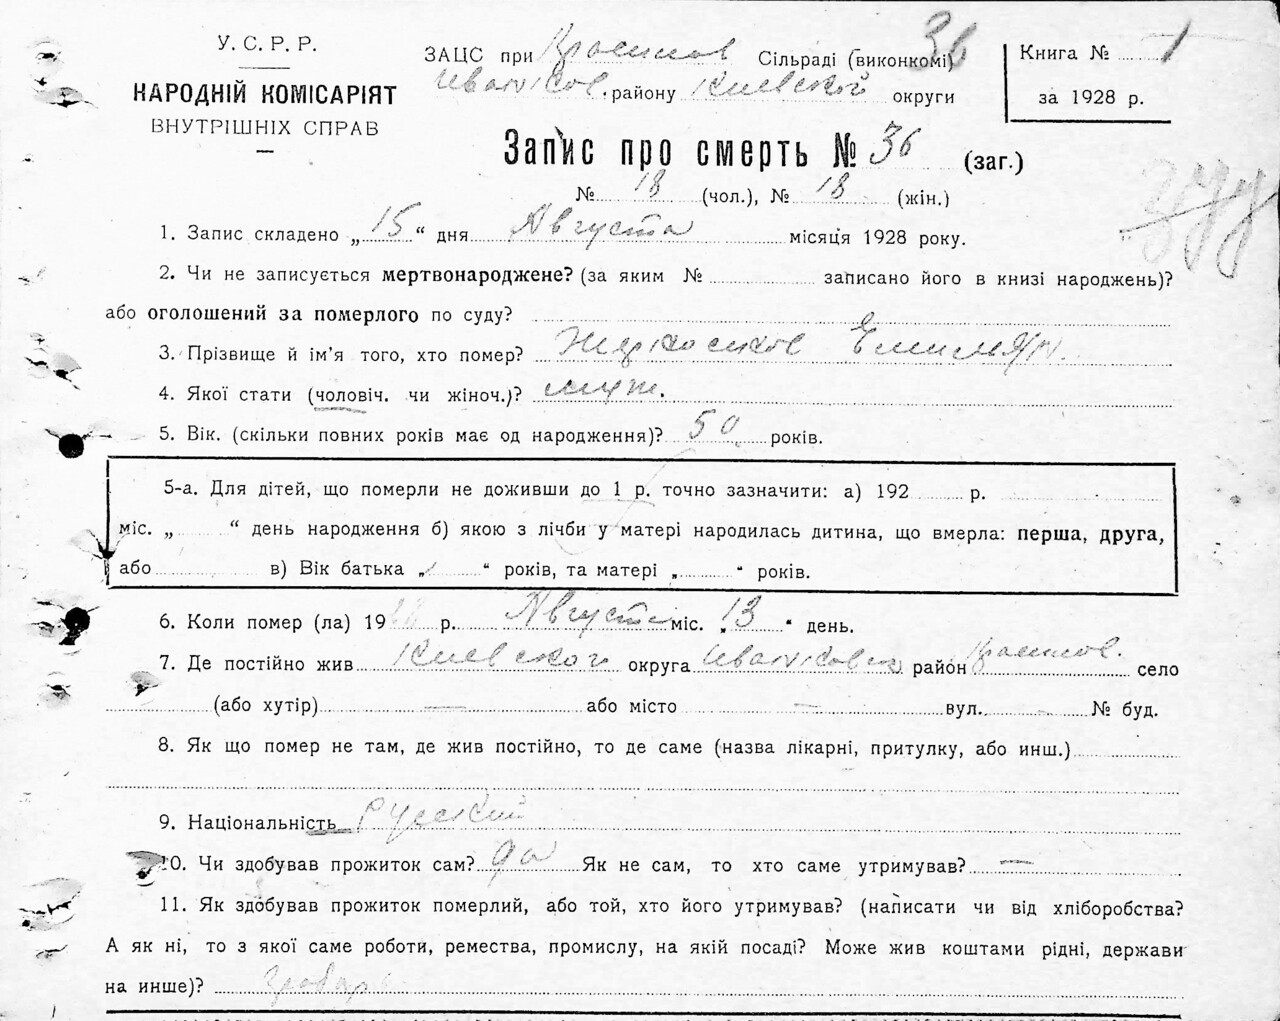 У. С. Р. Р.
НАРОДНІЙ КОМІСАРІЯТ
ВНУТРІШНІХ СПРАВ
ЗАЦС при Сільраді (виконкомі) 36
Иванков. району Киевской округи
Книга № 1
за 1928 р.
Запис про смерть № 36 (заг.)
№ 18 (чол.), № 18 (жін.)
1. Запис складено „ 15 “ дня Августа місяція 1928 року.
2. Чи не записується мертвонароджене? (за яким № записано його в книзі народжень)?
або оголошений за померлого по суду?
3. Прізвище й ім'я того, хто помер? Емильян.
4. Якої стати (чоловіч. чи жіноч.)? муж.
5. Вік. (скільки повних років має од народження)? 50 років.
5-а. Для дітей, що померли не доживши до 1 р. точно зазначити: а) 192 р.
міс. „ “ день народження б) якою з лічби у матері народилась дитина, що вмерла: перша, друга,
або в) Вік батька „ “ років, та матері „ “ років.
6. Коли помер (ла) 19 р. Августа міс. „ 13 “ день.
7. Де постійно жив Киевского округа Иванковск район село
(або хутір) — або місто — вул. — № буд.
8. Як що помер не там, де жив постійно, то де саме (назва лікарні, притулку, або инш.)
9. Національність Русский
10. Чи здобував прожиток сам? да Як не сам, то хто саме утримував? —
11. Як здобував прожиток померлий, або той, хто його утримував? (написати чи від хліборобства?
А як ні, то з якої саме роботи, ремества, промислу, на якій посаді? Може жив коштами рідні, держави
на инше)?